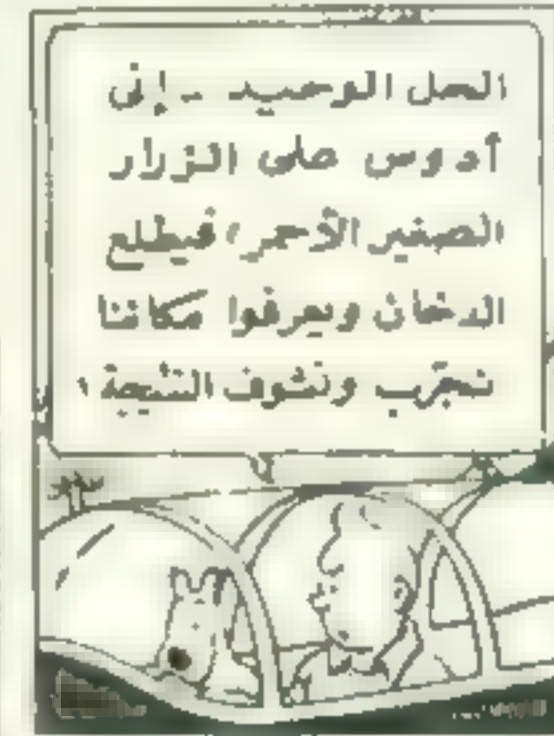 الحل الوحيد .. إنى
أدوس على الزرار
الصغير الأحمر، فيطلع
الدخان ويعرفوا مكاننا
نجرّب ونشوف النتيجة !